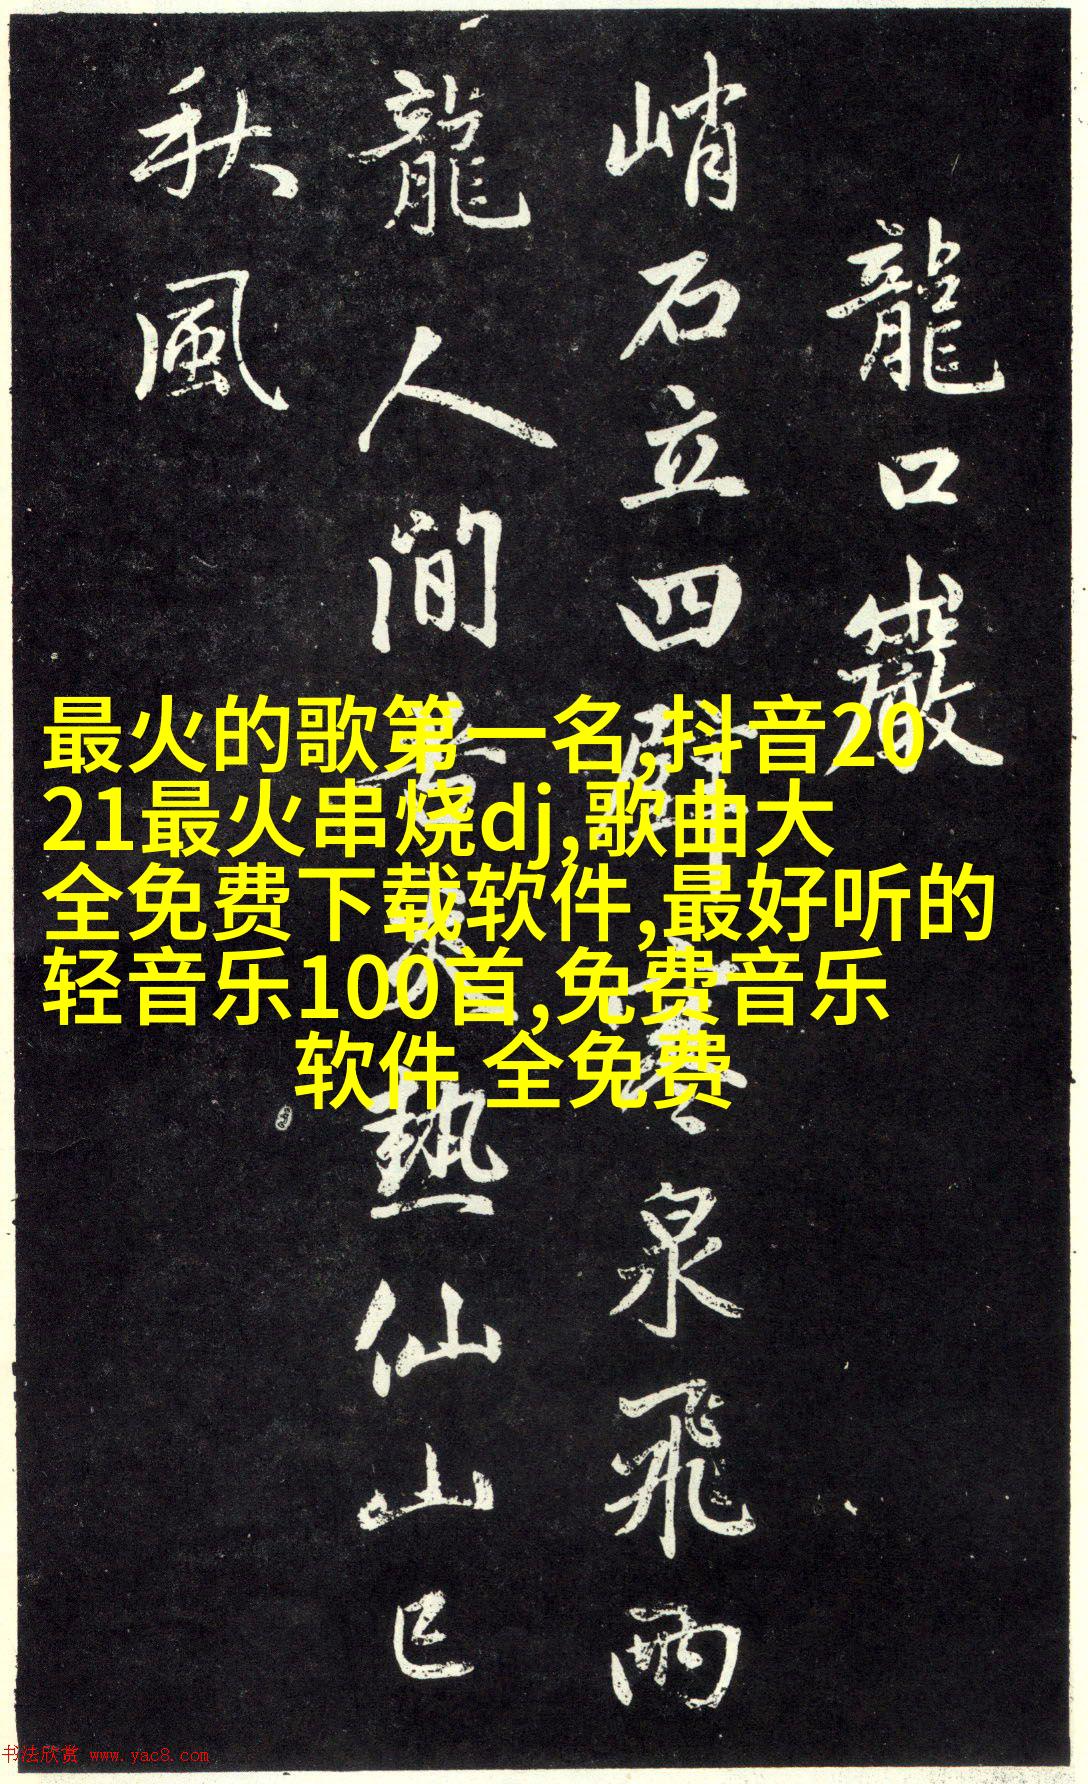 龍口巖
峭石立四壁寒泉飛兩
龍人間苦熱仙山已
秋風
最火的歌第一名,抖音20
21最火串烧dj,歌曲大
全免费下载软件,最好听的
轻音乐100首,免费音乐
软件 全免费
书法欣赏 www.yac8.com